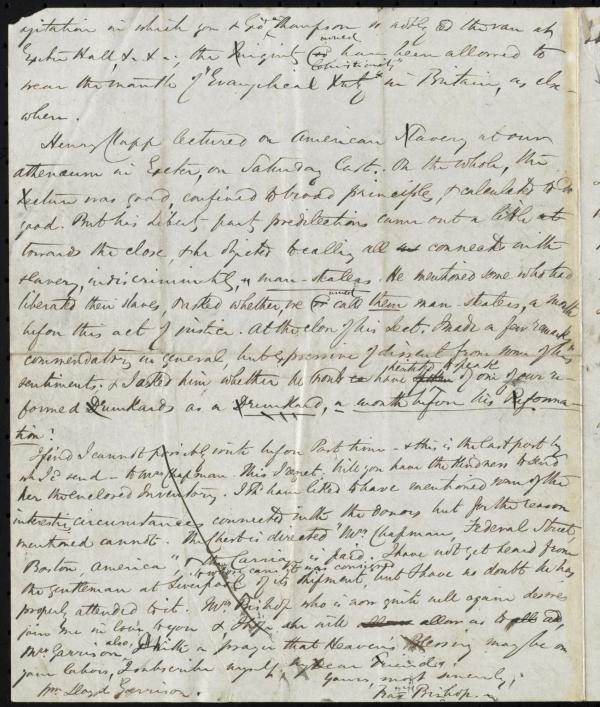 agitation in which you & Geo. Thompson so ably led the van at
Exeter Hall &. &c; the Xrigint moved have been allowed to
wear the mantle of "Evangelical Xnty" Christianity" in Britain, as else
where.
Henry Clapp lectured on American Slavery at our
athenæum in Exeter, on Saturday last. On the whole, the
Lecture was good, confined to broad principles, & calculated to do
good. But his Liberty party predilections came out a little at
towards the close, & he objected to calling all connected with
slavery, indiscriminately, "man-stealers. He mentioned some who had
liberated their slaves, & asked whether, we must call them man-stealers, a month
before this act of justice. At the close of his Lect. I made a few remarks
commendatory in general but expressive of dissent from some of his
sentiments. & I asked him, whether he would have hesitated to speak of one of our re-
formed Drunkards as a Drunkard, a month before his Reforma-
tion!
I find I cannot possibly write before Post time - & this is the last post by
wh I cd send - to Mrs Chapman. This I regret, will you have the kindness to send
her the enclosed Inventory. I shd have liked to have mentioned some of the
interestg circumstances connected with the donors but for the reason
mentioned cannot. The chest is directed "Mrs Chapman, Federal Street,
Boston, America", the Carriage is paid. I have not yet heard from
the gentleman at Liverpool to whose care it was consigned of its shipment, but I have no doubt he has
properly attended to it. Mrs Bishop who is now quite well again desires
join me in love to you & she will allow us to add,
Mrs Garrison also, With a prayer that Heavens Blessing may be on
your labors, I subscribe myself, my dear Friend,
yours, most sincerely,
Wm Lloyd Garrison. Fras Bishop.